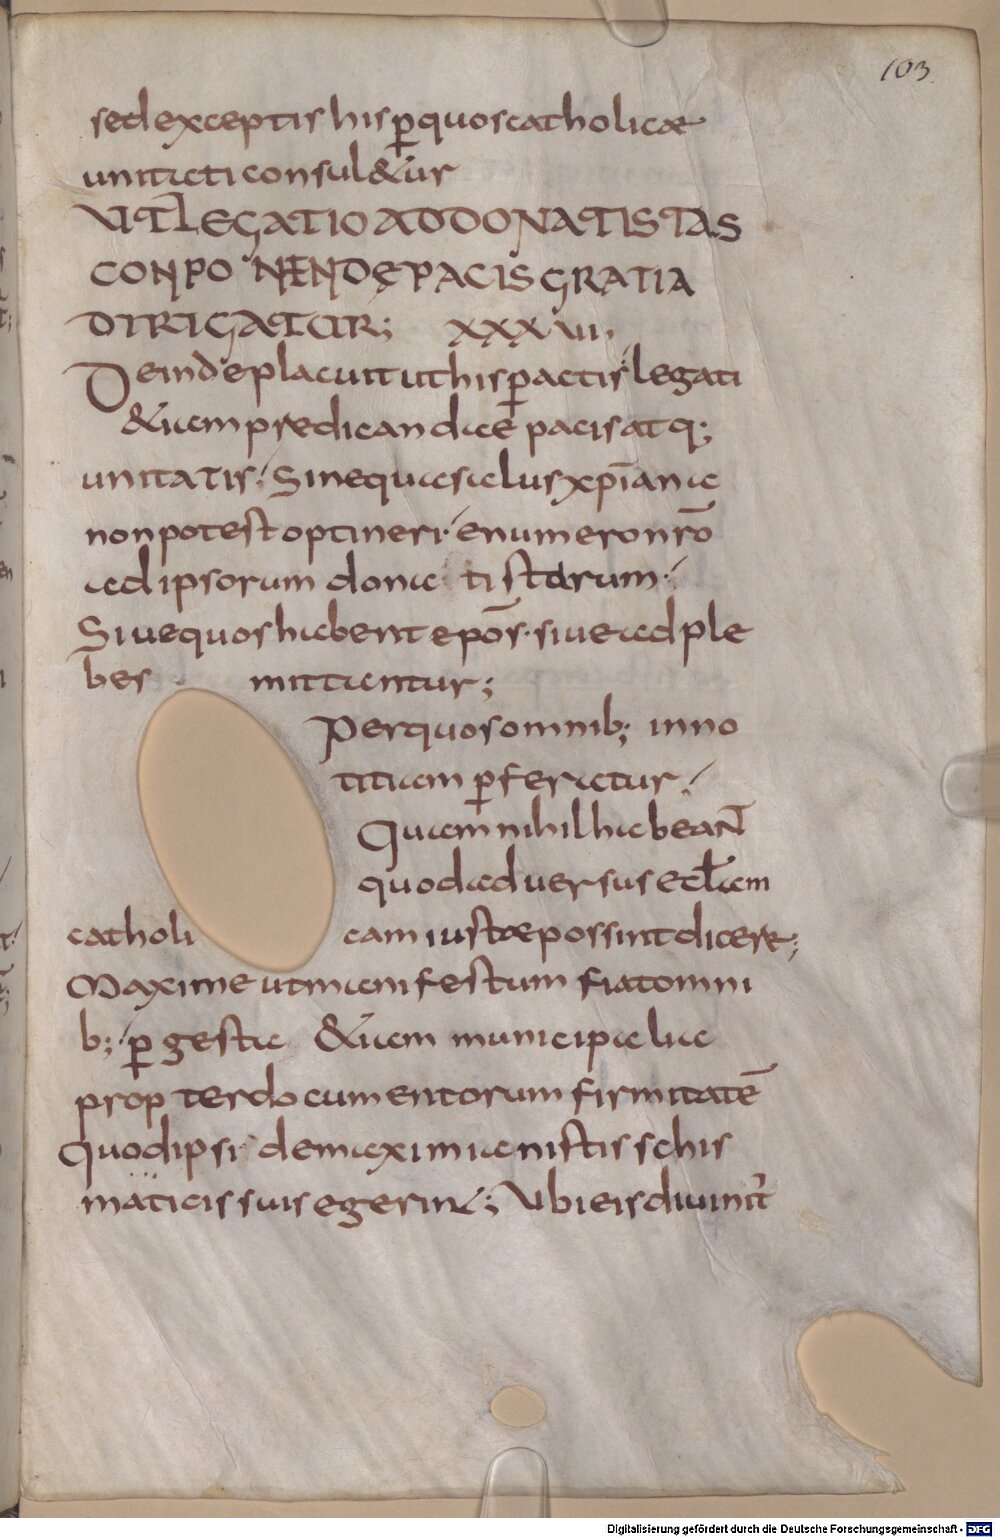 103
sed exceptis his ꝑ quos catholicae
unitati consul&ur
UT LEGATIO AD DONATISTAS
CONPONENDE PACIS GRATIA
DIRIGATUR; XXXVII,
Deinde placuit ut his ꝑactis legati
&iam predicandae pacis atq;
unitatis; Sine qua salus xp̄iana
non potest optineri; e numero nr̄o
ad ipsorum donatistarum;
Siue quos habent ep̄os. siue ad ple
bes mittantur;
Per quos omnib; in no
titiam ꝑferatur;
Quam nihil habeant
quod aduersus eccl̄am
catholicam iustae possint dicere;
Maxime ut manifestum fiat omni
b; ꝑ gesta &iam municipalia
propter documentorum firmitatē
quod ipsi de maximianistis schis
maticis suis egerint; Ubi eis diuinit̉
Digitalisierung gefördert durch die Deutsche Forschungsgemeinschaft - DFG